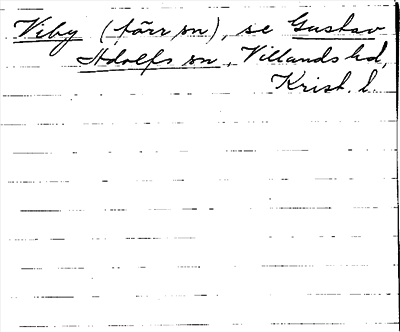 Viby (förr sn), se Gustav
Adolfs sn, Villands hd,
Krist. l.